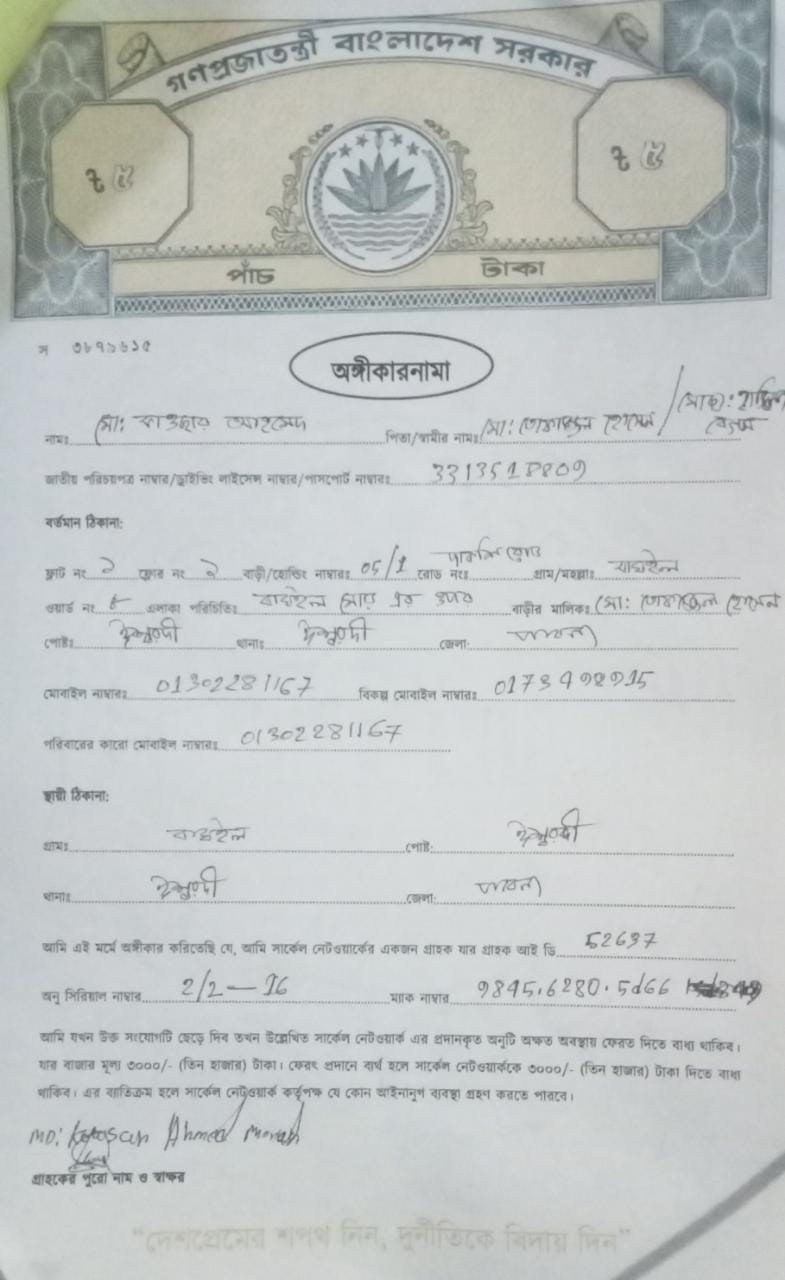 গণপ্রজাতন্ত্রী বাংলাদেশ সরকার
৳ ৫ ৳ ৫
পাঁচ টাকা
স ৩৮৭১৬১৫
অঙ্গীকারনামা
নামঃ মো: কাওছার আহমেদ পিতা/স্বামীর নামঃ মো: তোফাজ্জল হোসেন
জাতীয় পরিচয়পত্র নাম্বার/ড্রাইভিং লাইসেন্স নাম্বার/পাসপোর্ট নাম্বারঃ
বর্তমান ঠিকানা:
ফ্লাট নং ২ ফ্লোর নং ২ বাড়ী/হোল্ডিং নাম্বারঃ 05/1 রোড নংঃ গ্রাম/মহল্লাঃ
ওয়ার্ড নং ৮ এলাকা পরিচিতিঃ বাড়ীর মালিকঃ মো: তোফাজ্জল হোসেন
পোষ্টঃ ঈশ্বরদী থানাঃ ঈশ্বরদী জেলা: পাবনা
মোবাইল নাম্বারঃ 01302281167 বিকল্প মোবাইল নাম্বারঃ
পরিবারের কারো মোবাইল নাম্বারঃ 01302281167
স্থায়ী ঠিকানা:
গ্রামঃ পোষ্ট: ঈশ্বরদী
থানাঃ ঈশ্বরদী জেলা: পাবনা
আমি এই মর্মে অঙ্গীকার করিতেছি যে, আমি সার্কেল নেটওয়ার্কের একজন গ্রাহক যার গ্রাহক আই ডি 52697
অনু সিরিয়াল নাম্বার 2/2 — 16 ম্যাক নাম্বার 9845.6280.5d66
আমি যখন উক্ত সংযোগটি ছেড়ে দিব তখন উল্লেখিত সার্কেল নেটওয়ার্ক এর প্রদানকৃত অনুটি অক্ষত অবস্থায় ফেরত দিতে বাধ্য থাকিব।
যার বাজার মূল্য ৩০০০/- (তিন হাজার) টাকা। ফেরৎ প্রদানে ব্যর্থ হলে সার্কেল নেটওয়ার্ককে ৩০০০/- (তিন হাজার) টাকা দিতে বাধ্য
থাকিব। এর ব্যতিক্রম হলে সার্কেল নেটওয়ার্ক কর্তৃপক্ষ যে কোন আইনানুগ ব্যবস্থা গ্রহণ করতে পারবে।
MD: Ahmed
গ্রাহকের পুরো নাম ও স্বাক্ষর
"দেশপ্রেমের শপথ নিন, দুর্নীতিকে বিদায় দিন"